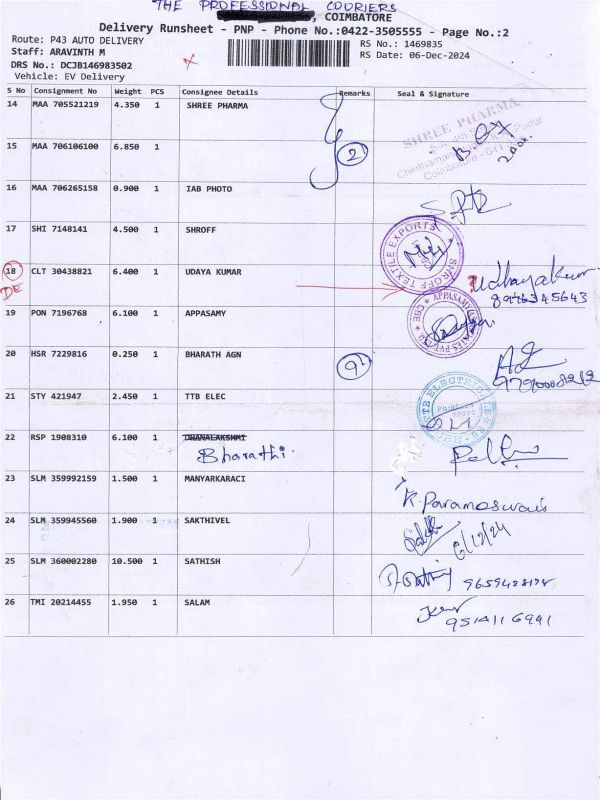 THE PROFESSIONAL COURIERS
, COIMBATORE
Delivery Runsheet - PNP - Phone No.:0422-3505555 - Page No.:2
Route: P43 AUTO DELIVERY
RS No.: 1469835
Staff: ARAVINTH M
RS Date: 06-Dec-2024
DRS No.: DCJB146983502
Vehicle: EV Delivery
S No Consignment No Weight PCS Consignee Details Remarks Seal & Signature
14 MAA 705521219 4.350 1 SHREE PHARMA
SHREE PHARMA
15 MAA 706106100 6.850 1
2
16 MAA 706265158 0.900 1 IAB PHOTO
17 SHI 7148141 4.500 1 SHROFF
SHROFF TEXTILE EXPORTS
18 CLT 30438821 6.400 1 UDAYA KUMAR
DE
Udhayakumar
8946345643
19 PON 7196768 6.100 1 APPASAMY
20 HSR 7229816 0.250 1 BHARATH AGN
9
9790008212
21 STY 421947 2.450 1 TTB ELEC
22 RSP 1908310 6.100 1 DHANALAKSHMI
Bharathi
23 SLM 359992159 1.500 1 MANYARKARACI
24 SLM 359945560 1.900 1 SAKTHIVEL
6/12/24
25 SLM 360002280 10.500 1 SATHISH
26 TMI 20214455 1.950 1 SALAM
9514116991